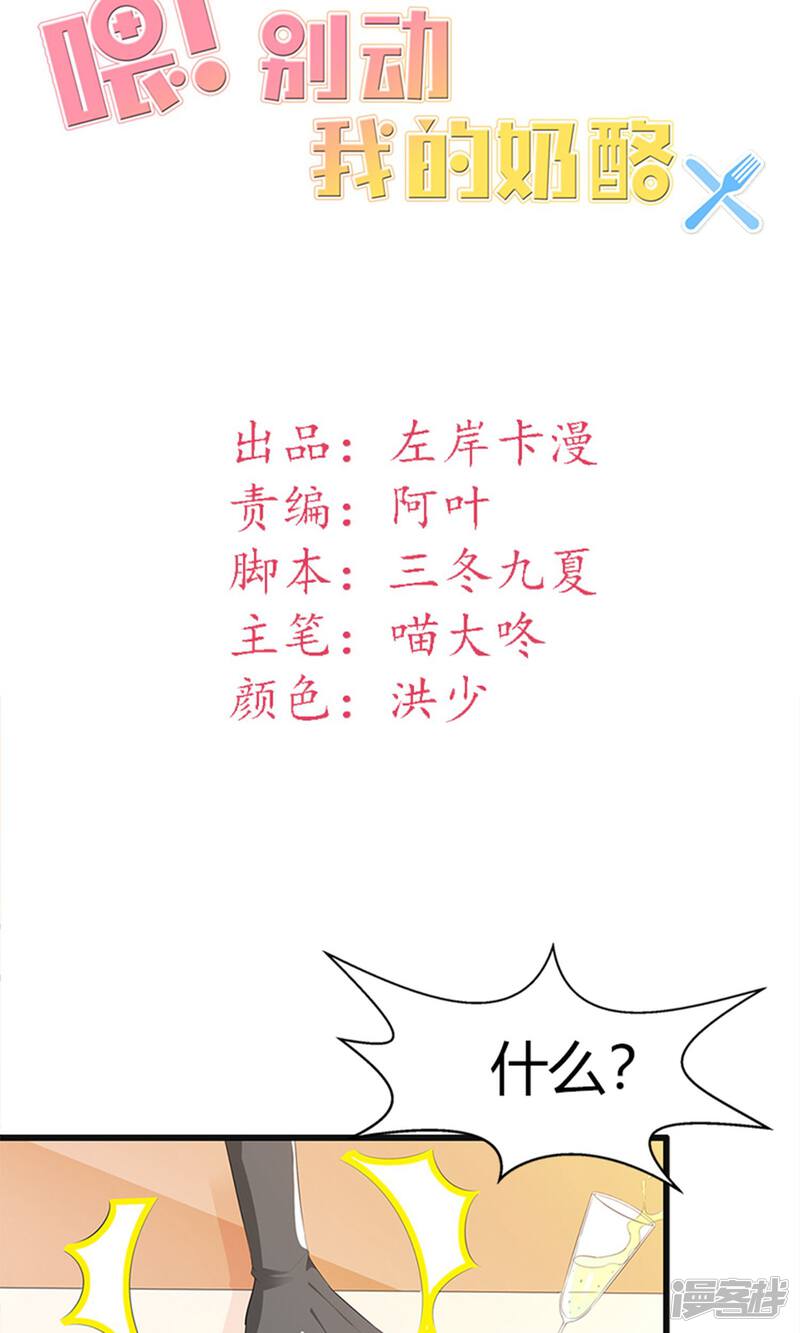 喂！别动
我的奶酪
出品：左岸卡漫
责编：阿叶
脚本：三冬九夏
主笔：喵大咚
颜色：洪少
什么？
漫客栈